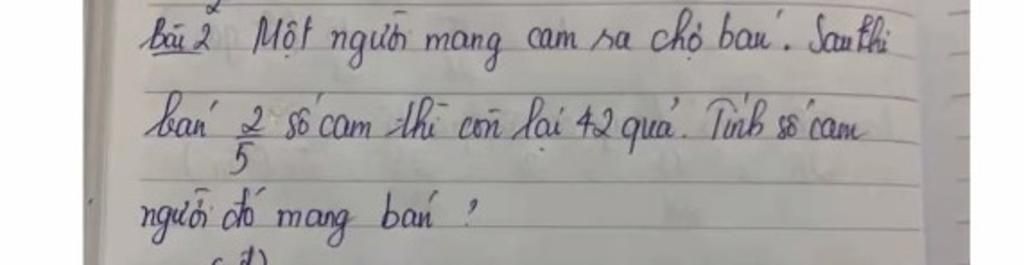 Bài 2 Một người mang cam ra chợ bán. Sau khi
bán 2/5 số cam thì còn lại 42 quả. Tính số cam
người đó mang bán ?